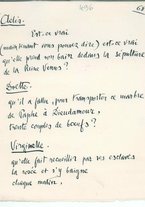 496
68
Chloris.
Est-ce vrai
(maintenant vous pouvez dire) est-ce vrai
qu'elle prend son bain dedans la sépulture
de la Reine Vénus ?
Lucette.
qu'il a fallu, pour transporter ce marbre
de Paphos à Dieudamour,
trente couples de bœufs ?
Virginelle.
qu'elle fait recueillir par ses esclaves
la rosée et s'y baigne
chaque matin,